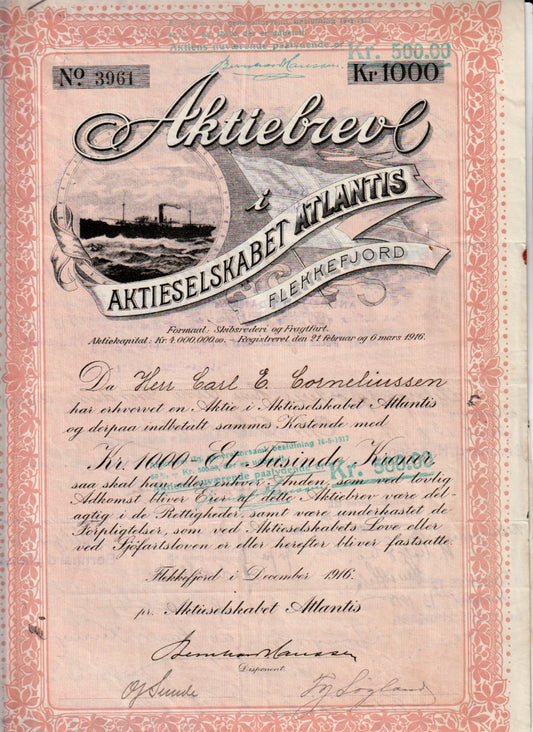 beslutning 16-5-1917
Aktiens nuværende paalydende er Kr. 500.00
Bernhard Hanssen
No. 3961
Kr 1000
Aktiebrev
i
AKTIESELSKABET ATLANTIS
FLEKKEFJORD
Formaal: Skibsrederi og Fragtfart.
Aktiekapital: Kr. 4,000,000.00. – Registreret den 21 februar og 6 mars 1916.
Da Herr Carl E. Corneliussen
har erhvervet en Aktie i Aktieselskabet Atlantis
og derpaa indbetalt sammes Kostende med
Kr. 1000 Et tusinde Kroner
beslutning 16-5-1917
nuværende paalydende Kr. 500.00
saa skal han eller enhver Anden, som ved lovlig
Adkomst bliver Eier af dette Aktiebrev være del-
agtig i de Rettigheder samt være underhastet de
Forpligtelser, som ved Aktieselskabets Love eller
ved Sjöfartsloven er eller herefter bliver fastsatte.
Flekkefjord i December 1916.
pr. Aktieselskabet Atlantis
Bernhard Hanssen
Disponent.
O Sunde
Søgland